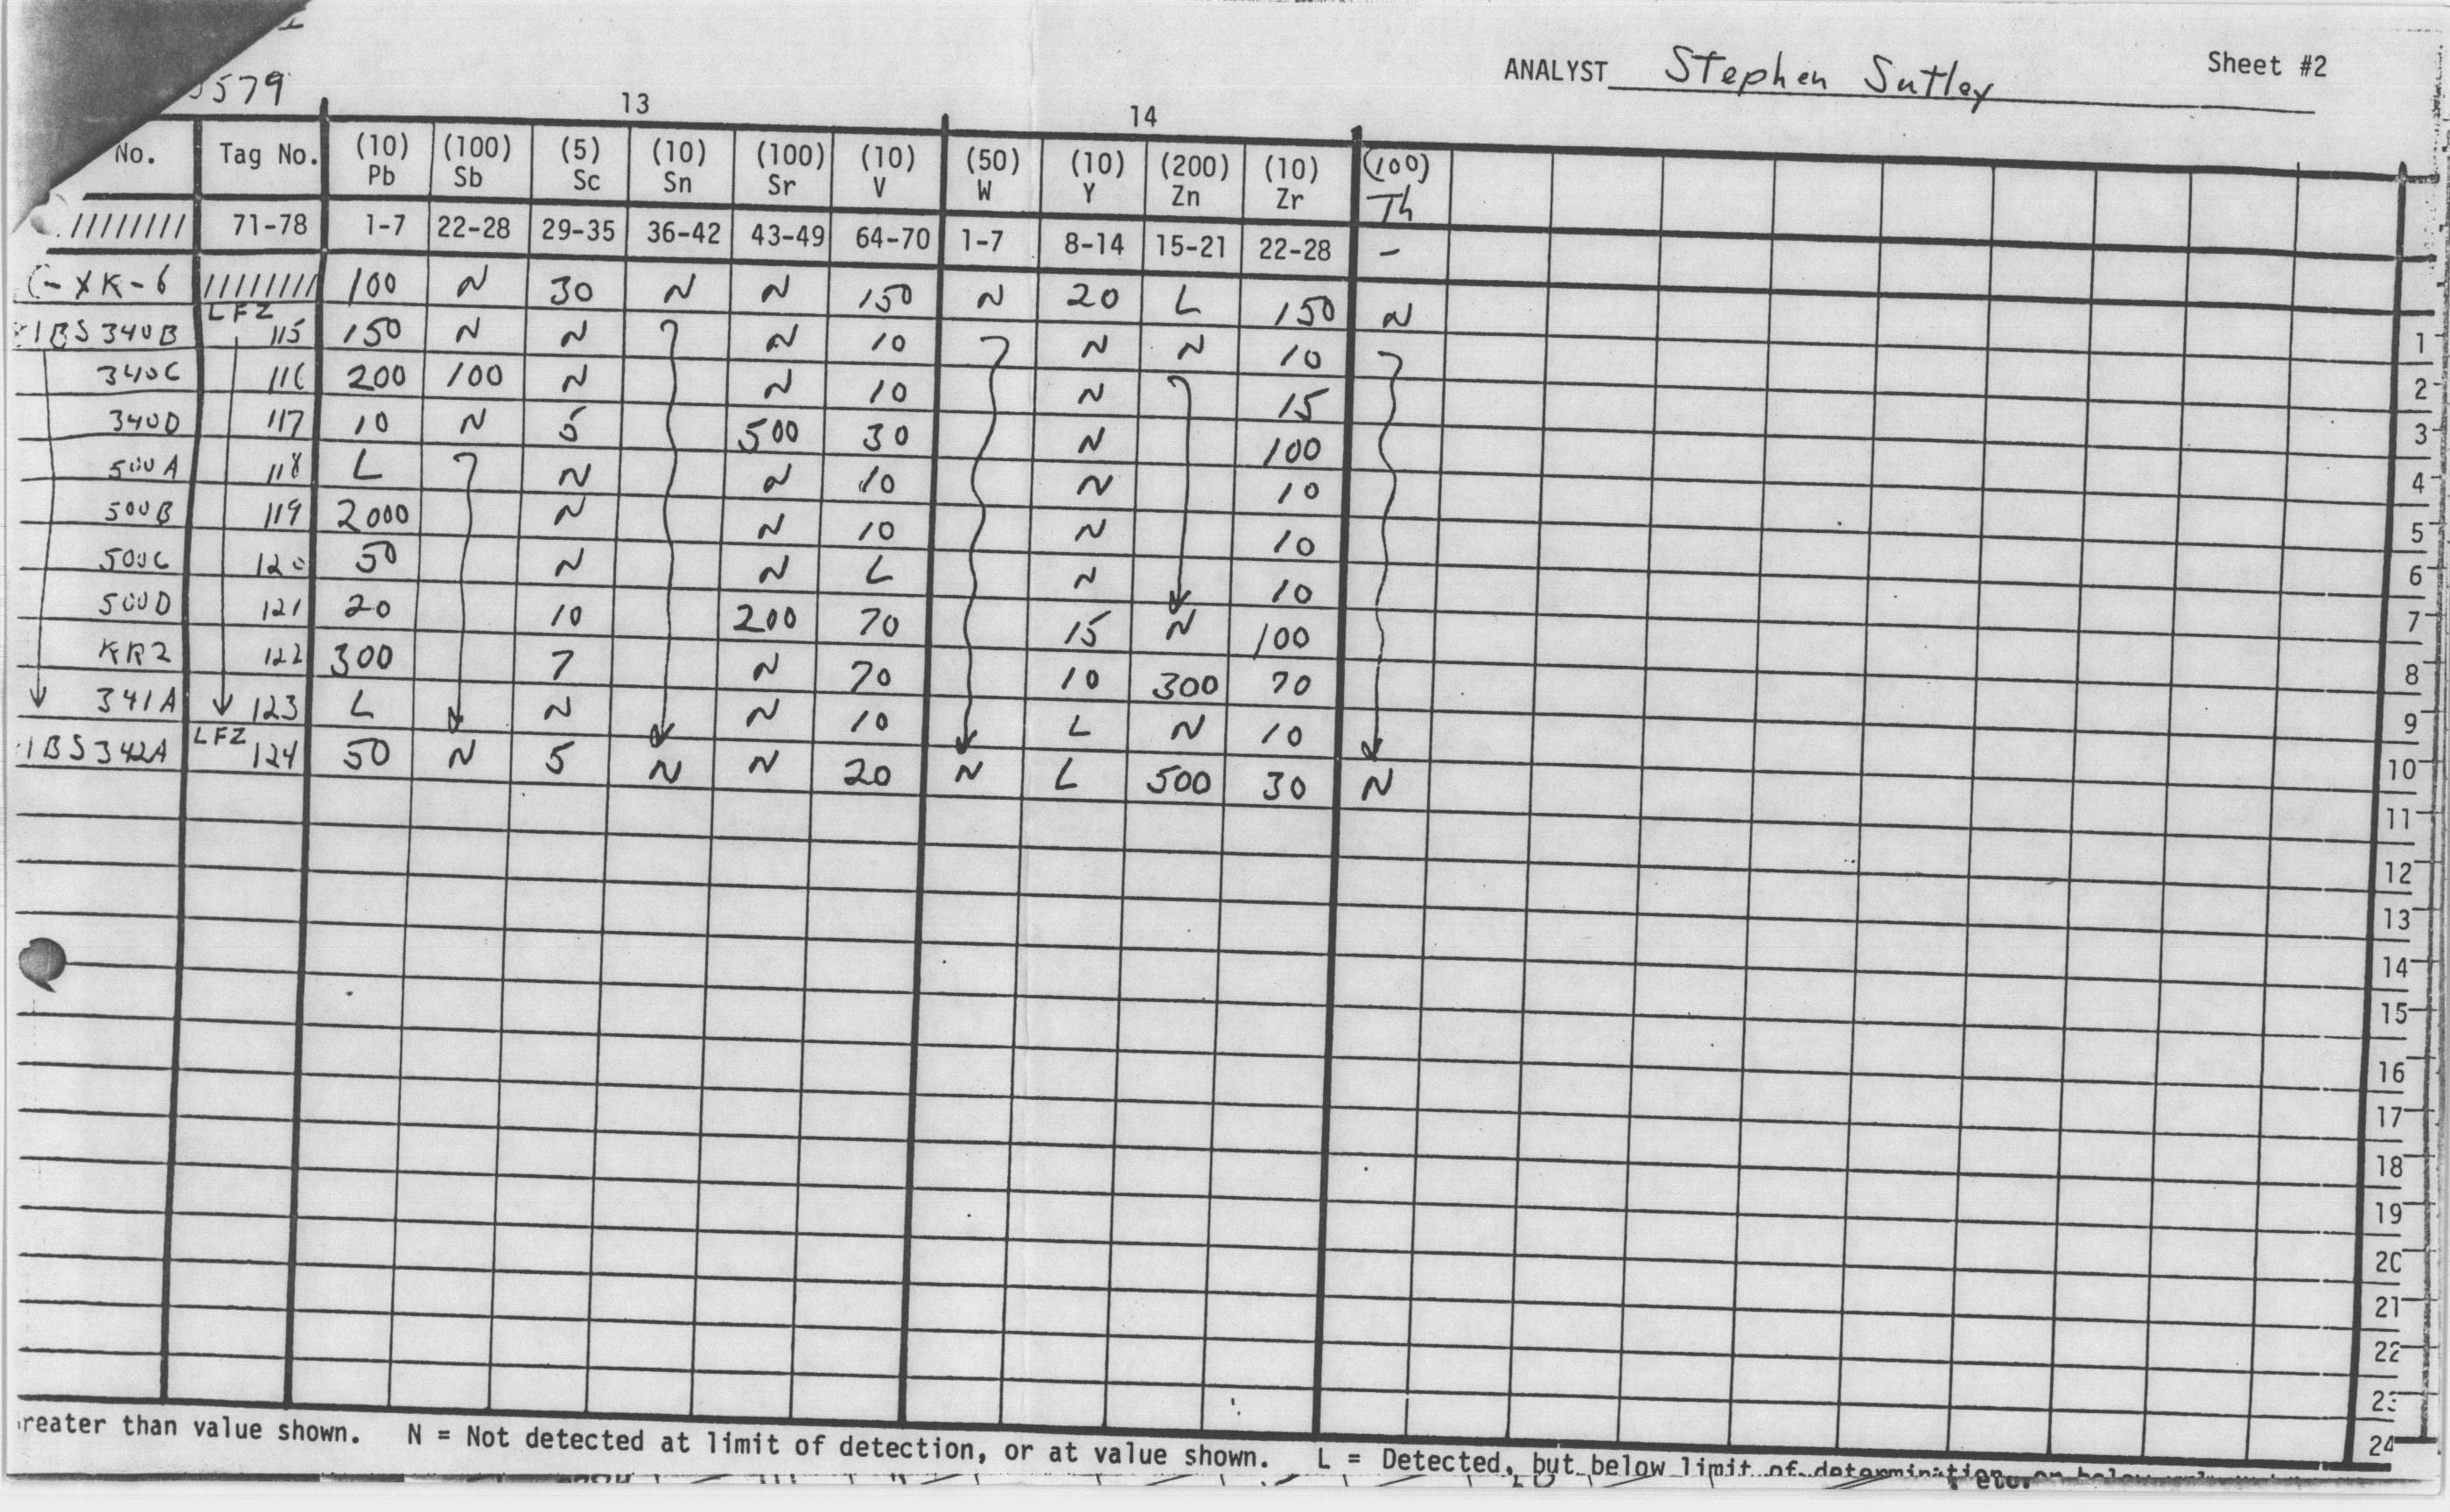 579
ANALYST Stephen Sutley Sheet #2
13 14
No. Tag No. (10) Pb (100) Sb (5) Sc (10) Sn (100) Sr (10) V (50) W (10) Y (200) Zn (10) Zr (100) Th
//////// 71-78 1-7 22-28 29-35 36-42 43-49 64-70 1-7 8-14 15-21 22-28 -
-XK-6 //////// 100 N 30 N N 150 N 20 L 150 N
1BS340B LFZ 115 150 N N N 10 N N 10 1
340C 116 200 100 N N 10 N 15 2
340D 117 10 N 5 500 30 N 100 3
500A 118 L N N 10 N 10 4
500B 119 2000 N N 10 N 10 5
500C 120 50 N N L N 10 6
500D 121 20 10 200 70 15 N 100 7
KR2 122 300 7 N 70 10 300 70 8
341A 123 L N N 10 L N 10 9
1BS342A LFZ 124 50 N 5 N N 20 N L 500 30 N 10
11
12
13
14
15
16
17
18
19
20
21
22
24
reater than value shown. N = Not detected at limit of detection, or at value shown. L = Detected, but below limit of determination, or below
etc.